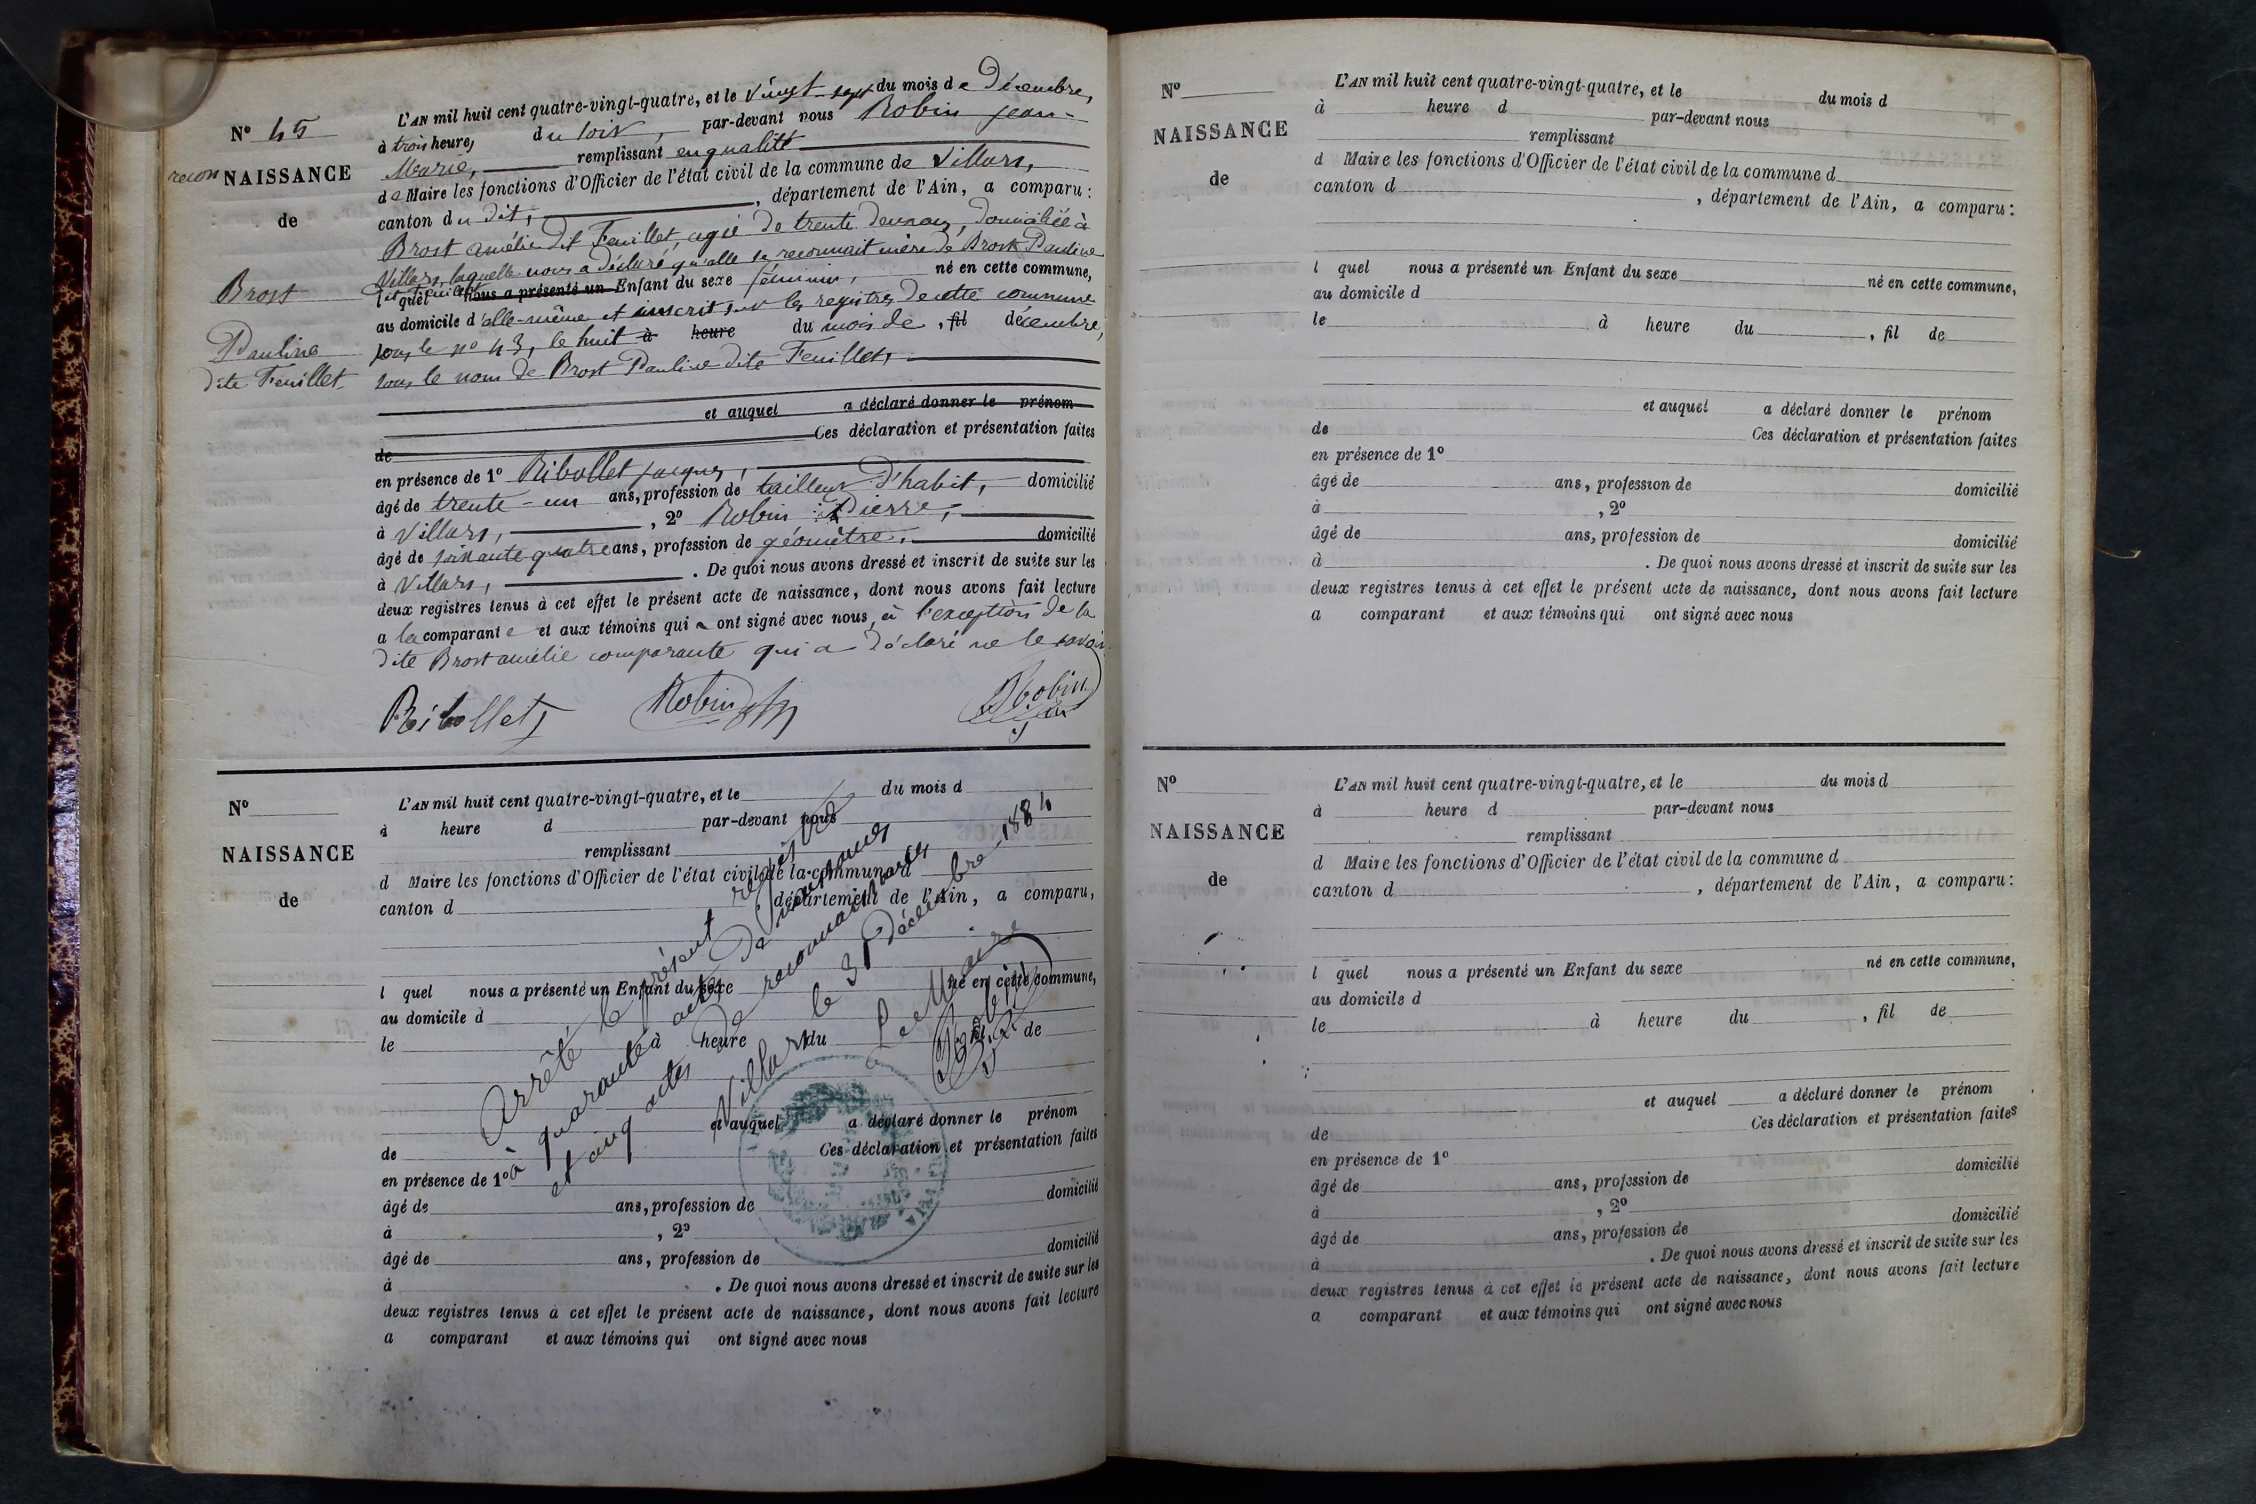 N° 45
recon NAISSANCE
de
Brost
Pauline
dite Feuillet
L'AN mil huit cent quatre-vingt-quatre, et le vingt-sept du mois de Décembre,
à trois heures du soir, par-devant nous Robin Jean-
Marie, remplissant en qualité
de Maire les fonctions d'Officier de l'état civil de la commune de Villars,
canton du dit, département de l'Ain, a comparu :
Brost amélie dit Feuillet, agée de trente deux ans, domiciliée à
Villars, laquelle nous a déclaré qu'elle se reconnait mère de Brost Pauline
dit Feuillet
l quel nous a présenté un Enfant du sexe féminin, né en cette commune,
au domicile d'elle-même et inscrit sur les registres de cette commune
sous le n° 43, le huit à heure du mois de , fil décembre,
sous le nom de Brost Pauline dite Feuillet,
et auquel a déclaré donner le prénom
de Ces déclaration et présentation faites
en présence de 1° Ribollet Jacques,
âgé de trente-un ans, profession de tailleur d'habit, domicilié
à Villars, , 2° Robin Pierre,
âgé de soixante quatre ans, profession de géomètre, domicilié
à Villars, . De quoi nous avons dressé et inscrit de suite sur les
deux registres tenus à cet effet le présent acte de naissance, dont nous avons fait lecture
a la comparante et aux témoins qui ont signé avec nous, à l'exception de la
dite Brost amélie comparante qui a déclaré ne le savoir
Ribollet Robin Robin
N°
NAISSANCE
de
L'AN mil huit cent quatre-vingt-quatre, et le du mois d
à heure d par-devant nous
remplissant
d Maire les fonctions d'Officier de l'état civil de la commune d
canton d département de l'Ain, a comparu,
l quel nous a présenté un Enfant du sexe né en cette commune,
au domicile d
le à heure du , fil de
et auquel a déclaré donner le prénom
de Ces déclaration et présentation faites
en présence de 1°
âgé de ans, profession de domicilié
à , 2°
âgé de ans, profession de domicilié
à . De quoi nous avons dressé et inscrit de suite sur les
deux registres tenus à cet effet le présent acte de naissance, dont nous avons fait lecture
a comparant et aux témoins qui ont signé avec nous
Arrêté le présent registre
à quarante actes de naissances
et cinq actes de reconnaissances
Villars le 31 Décembre 1884
Le Maire
Robin
N°
NAISSANCE
de
L'AN mil huit cent quatre-vingt-quatre, et le du mois d
à heure d par-devant nous
remplissant
d Maire les fonctions d'Officier de l'état civil de la commune d
canton d , département de l'Ain, a comparu :
l quel nous a présenté un Enfant du sexe né en cette commune,
au domicile d
le à heure du , fil de
et auquel a déclaré donner le prénom
de Ces déclaration et présentation faites
en présence de 1°
âgé de ans, profession de domicilié
à , 2°
âgé de ans, profession de domicilié
à . De quoi nous avons dressé et inscrit de suite sur les
deux registres tenus à cet effet le présent acte de naissance, dont nous avons fait lecture
a comparant et aux témoins qui ont signé avec nous
N°
NAISSANCE
de
L'AN mil huit cent quatre-vingt-quatre, et le du mois d
à heure d par-devant nous
remplissant
d Maire les fonctions d'Officier de l'état civil de la commune d
canton d , département de l'Ain, a comparu :
l quel nous a présenté un Enfant du sexe né en cette commune,
au domicile d
le à heure du , fil de
et auquel a déclaré donner le prénom
de Ces déclaration et présentation faites
en présence de 1°
âgé de ans, profession de domicilié
à , 2°
âgé de ans, profession de domicilié
à . De quoi nous avons dressé et inscrit de suite sur les
deux registres tenus à cet effet le présent acte de naissance, dont nous avons fait lecture
a comparant et aux témoins qui ont signé avec nous